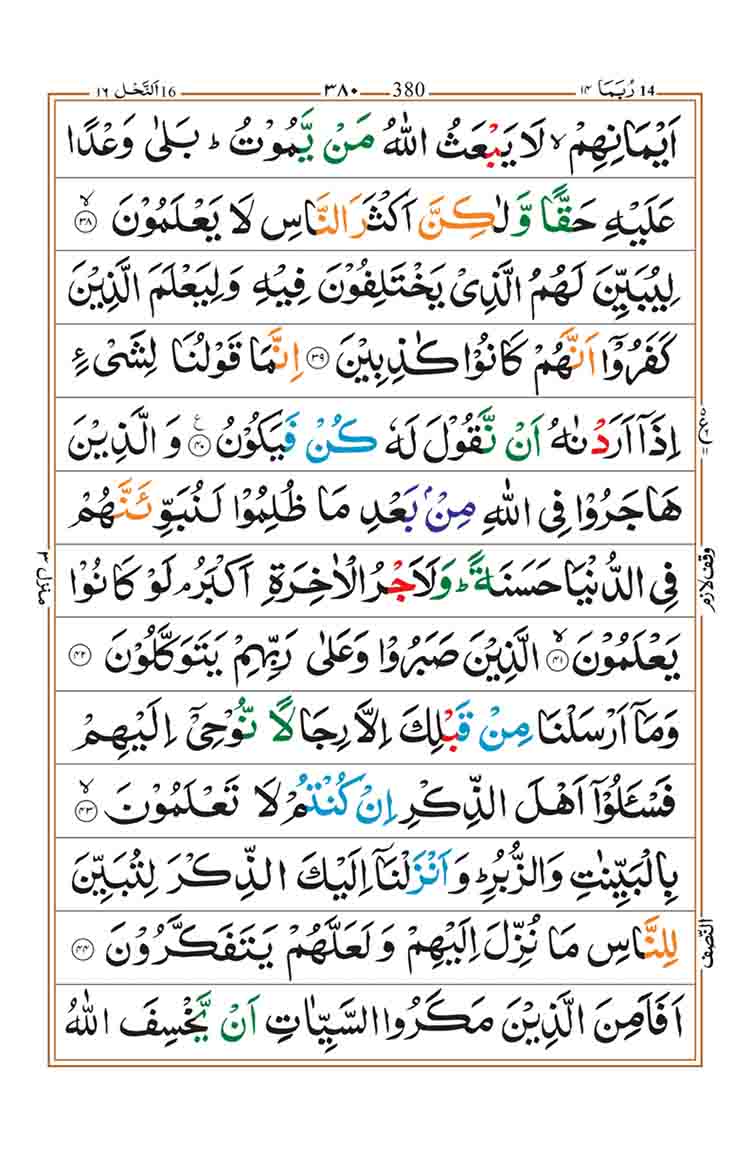 14 رُبَمَا ١٤ 380 ٣٨٠ 16 اَلنَّحْل ١٦
اَيْمَانِهِمْ ۙ لَا يَبْعَثُ اللّٰهُ مَنْ يَّمُوْتُ ؕ بَلٰى وَعْدًا
عَلَيْهِ حَقًّا وَّ لٰكِنَّ اَكْثَرَ النَّاسِ لَا يَعْلَمُوْنَ ۙ ﴿۳۸﴾
لِيُبَيِّنَ لَهُمُ الَّذِىْ يَخْتَلِفُوْنَ فِيْهِ وَ لِيَعْلَمَ الَّذِيْنَ
كَفَرُوْۤا اَنَّهُمْ كَانُوْا كٰذِبِيْنَ ﴿۳۹﴾ اِنَّمَا قَوْلُنَا لِشَىْءٍ
اِذَاۤ اَرَدْنٰهُ اَنْ نَّقُوْلَ لَهٗ كُنْ فَيَكُوْنُ ﴿۴۰﴾ ع وَ الَّذِيْنَ
هَاجَرُوْا فِى اللّٰهِ مِنْۢ بَعْدِ مَا ظُلِمُوْا لَـنُبَوِّئَنَّهُمْ
فِى الدُّنْيَا حَسَنَةً ؕ وَلَاَجْرُ الْاٰخِرَةِ اَكْبَرُ ۘ لَوْ كَانُوْا
يَعْلَمُوْنَ ۙ ﴿۴۱﴾ الَّذِيْنَ صَبَرُوْا وَعَلٰى رَبِّهِمْ يَتَوَكَّلُوْنَ ﴿۴۲﴾
وَمَاۤ اَرْسَلْنَا مِنْ قَبْلِكَ اِلَّا رِجَالًا نُّوْحِىْۤ اِلَيْهِمْ
فَسْئَلُوْۤا اَهْلَ الذِّكْرِ اِنْ كُنْتُمْ لَا تَعْلَمُوْنَ ۙ ﴿۴۳﴾
بِالْبَيِّنٰتِ وَالزُّبُرِ ؕ وَ اَنْزَلْنَاۤ اِلَيْكَ الذِّكْرَ لِتُبَيِّنَ
لِلنَّاسِ مَا نُزِّلَ اِلَيْهِمْ وَ لَعَلَّهُمْ يَتَفَكَّرُوْنَ ﴿۴۴﴾
اَفَاَمِنَ الَّذِيْنَ مَكَرُوا السَّيِّاٰتِ اَنْ يَّخْسِفَ اللّٰهُ
وقف لازم
النّصف
منزل ۳